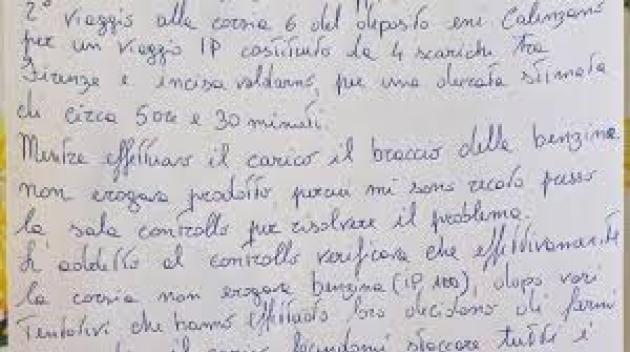 2° viaggio alla corsia 6 del deposito eni Calenzano
per un viaggio IP costituito da 4 scarichi tra
Firenze e incisa valdarno, per una durata stimata
di circa 5 ore e 30 minuti.
Mentre effettuavo il carico il braccio della benzina
non erogava prodotto, percui mi sono recato presso
la sala controllo per risolvere il problema.
L'addetto al controllo verificava che effettivamente
la corsia non erogava benzina (IP 100), dopo vari
Tentativi che hanno effettuato loro decidono di farmi
il carico facendomi staccare tutti i